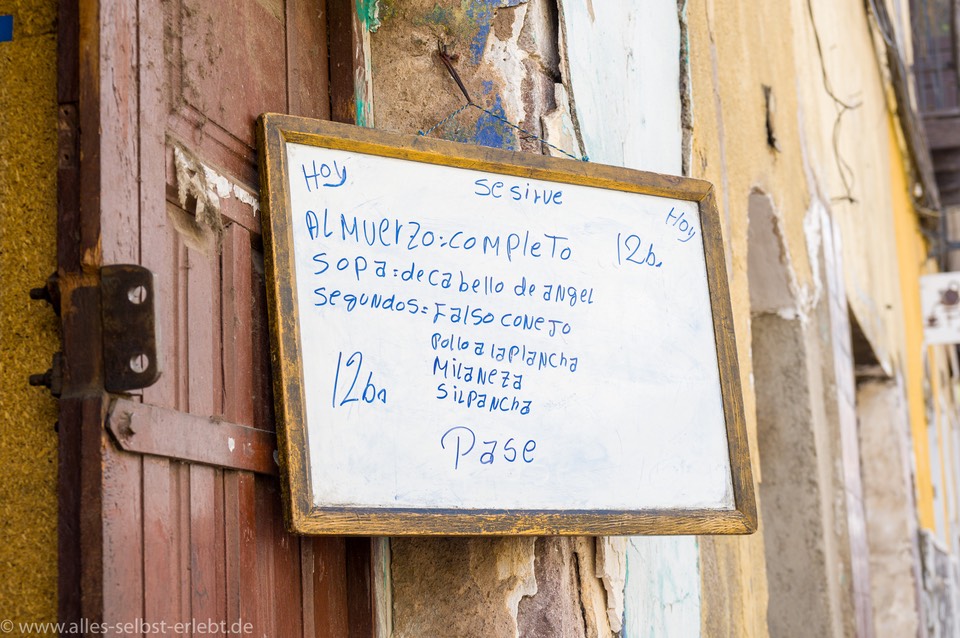 Hoy se sirve Hoy
Almuerzo: completo 12b.
Sopa: de cabello de angel
Segundos= Falso conejo
Pollo a la plancha
Milaneza
12bs Silpancha
Pase
© www.alles-selbst-erlebt.de